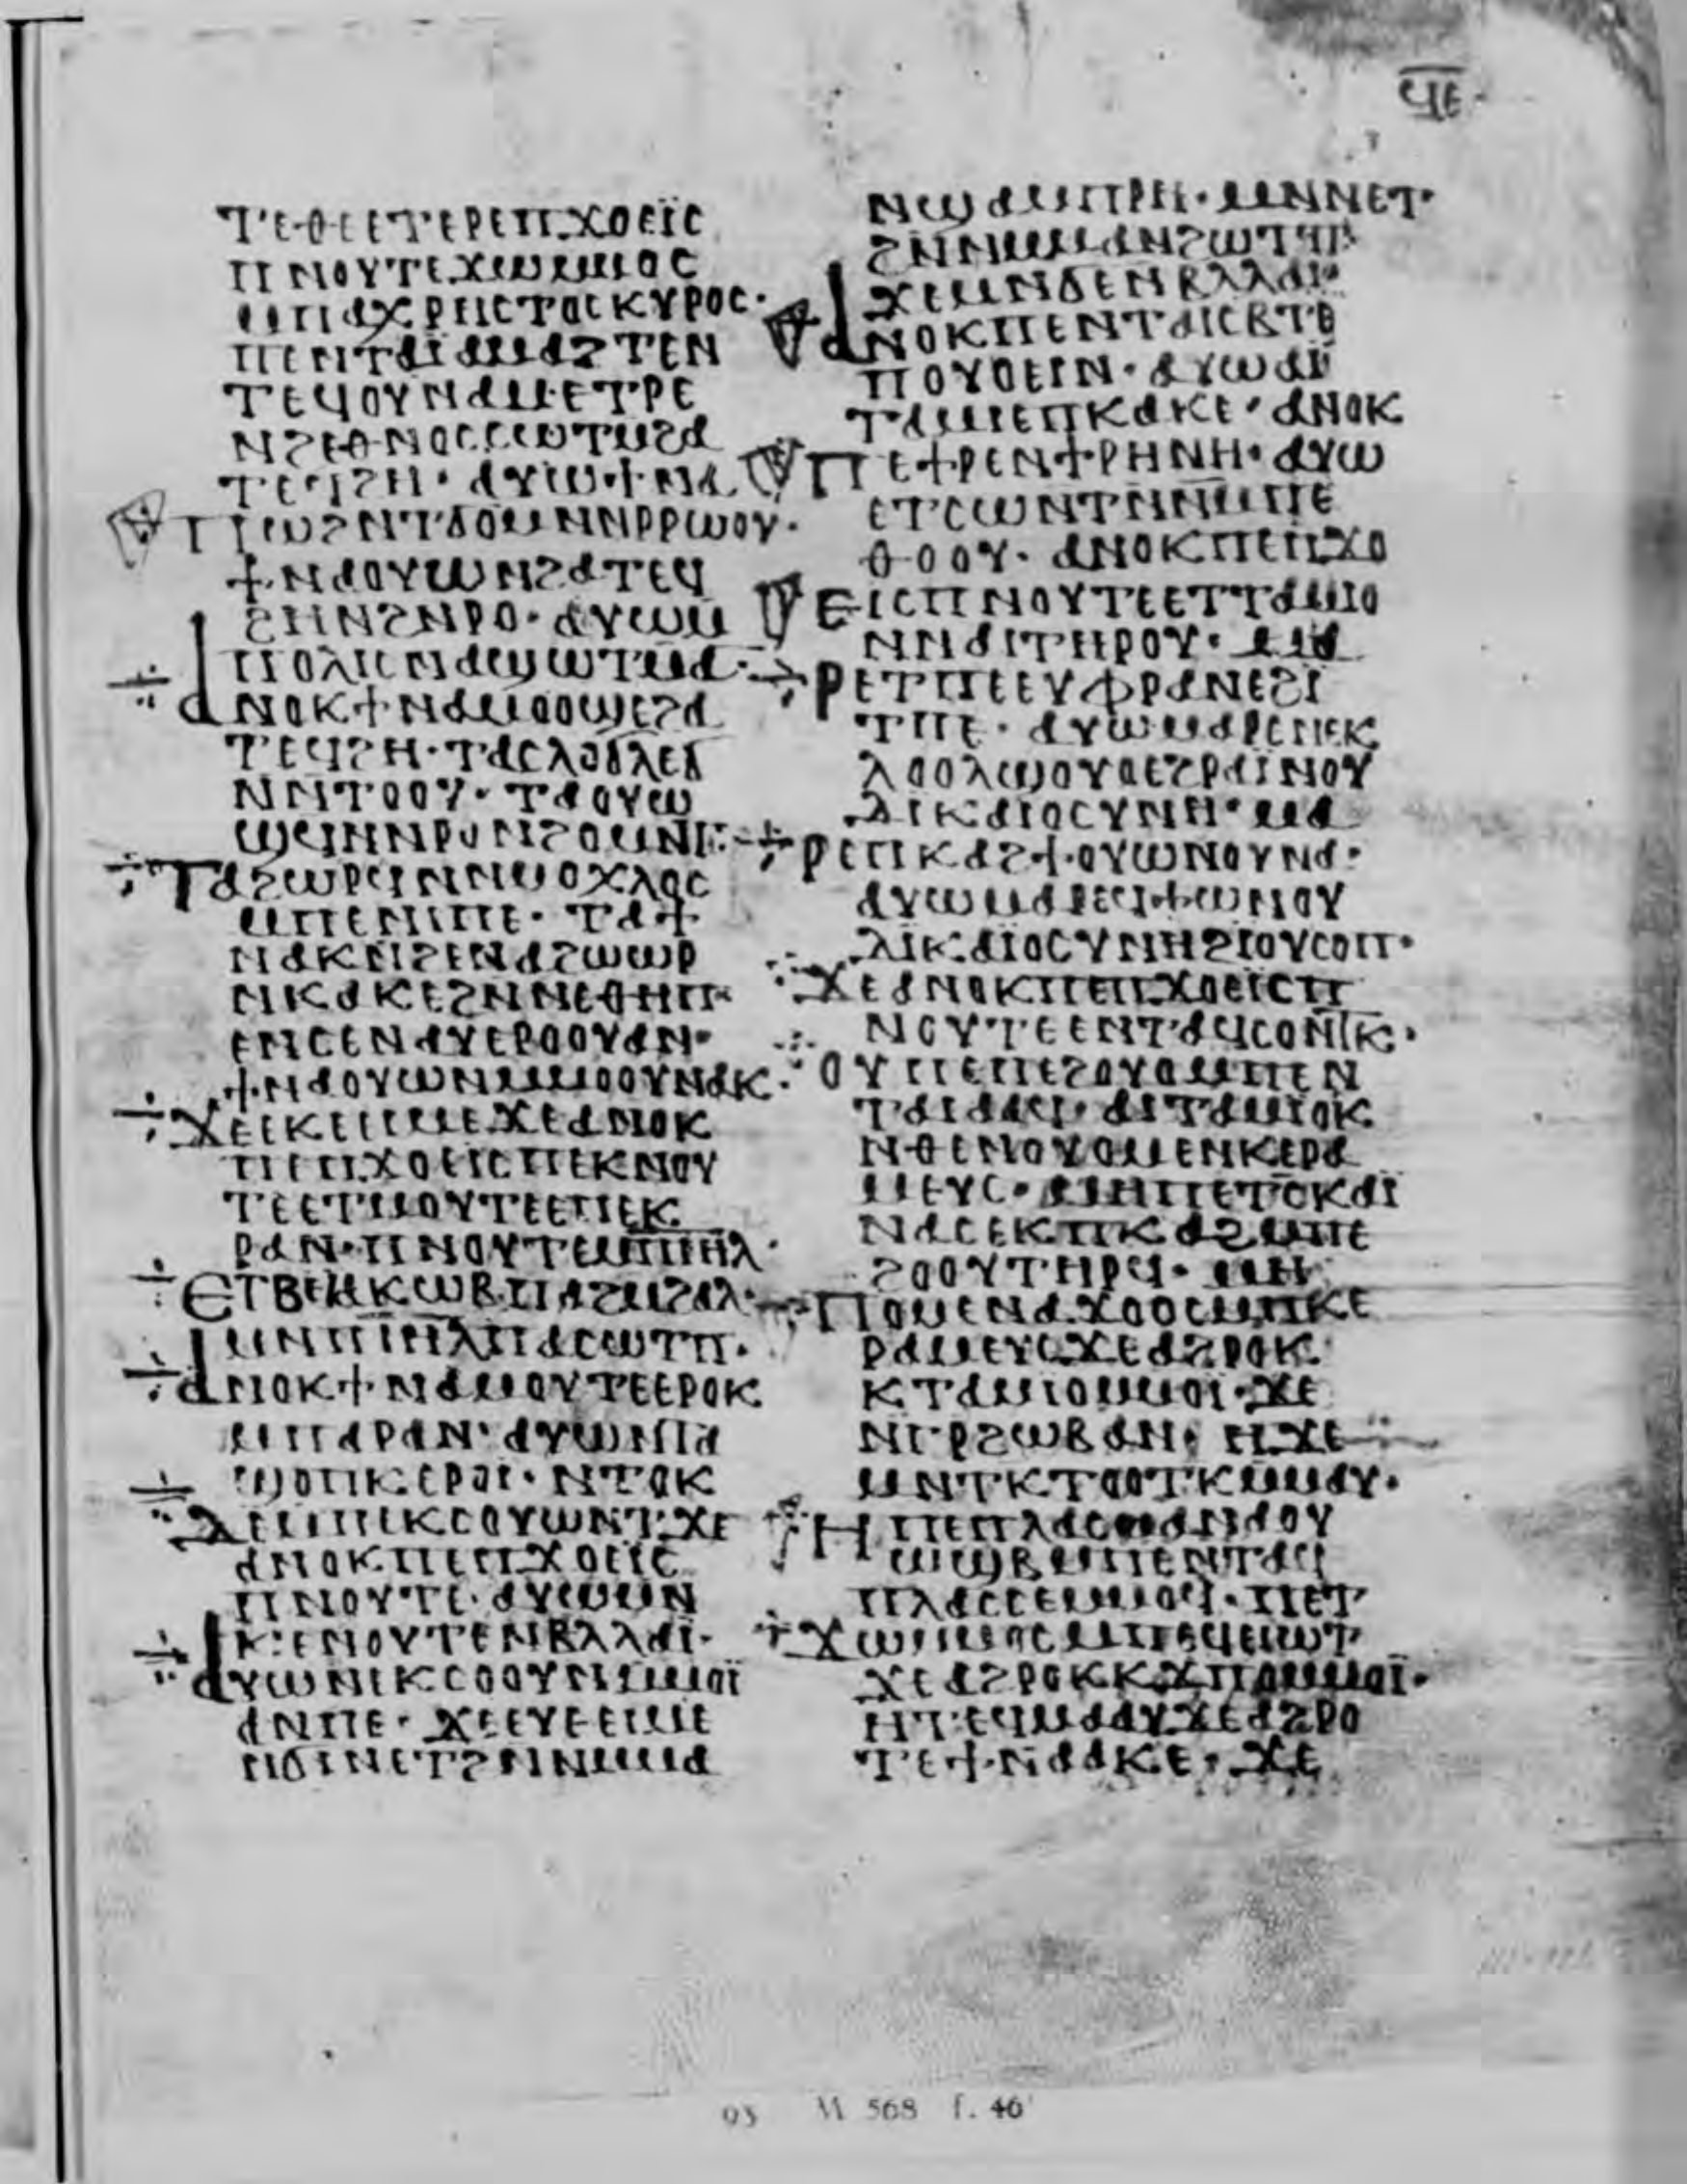 ϥⲉ
ⲧⲉⲑⲉⲉⲧⲉⲣⲉⲡϫⲟⲉⲓⲥ
ⲡⲛⲟⲩⲧⲉϫⲱⲙⲙⲟⲥ
ⲙⲡⲁⲭⲣⲏⲥⲧⲟⲥⲕⲩⲣⲟⲥ·
ⲡⲉⲛⲧⲁⲓ̈ⲁⲙⲁϩⲧⲉⲛ
ⲧⲉϥⲟⲩⲛⲁⲙⲉⲧⲣⲉ
ⲛϩⲉⲑⲛⲟⲥⲥⲱⲧⲙϩⲁ
ⲧⲉϥϩⲏ· ⲁⲩⲱϯⲛⲁ
ⲡⲱϩⲛⲧϭⲟⲙⲛⲛⲣⲣⲱⲟⲩ·
ϯⲛⲁⲟⲩⲱⲛϩⲁⲧⲉϥ
ϩⲏⲛϩⲛⲣⲟ· ⲁⲩⲱⲙ
ⲡⲟⲗⲓⲥⲛⲁϣⲱⲧⲙⲁ·
ⲁⲛⲟⲕϯⲛⲁⲙⲟⲟϣⲉϩⲁ
ⲧⲉϥϩⲏ· ⲧⲁⲥⲗⲟϭⲗⲉϭ
ⲛⲛⲧⲟⲟⲩ· ⲧⲁⲟⲩⲱ
ϣϥⲛⲛⲣⲟⲛϩⲟⲙⲛⲧ·
ⲧⲁϩⲱⲣϥⲛⲛⲙⲟⲭⲗⲟⲥ
ⲙⲡⲉⲛⲓⲡⲉ· ⲧⲁϯ
ⲛⲁⲕⲛϩⲉⲛⲁϩⲱⲱⲣ
ⲛⲕⲁⲕⲉϩⲛⲛⲉⲑⲏⲡ·
ⲉⲛⲥⲉⲛⲁⲩⲉⲣⲟⲟⲩⲁⲛ·
ϯⲛⲁⲟⲩⲱⲛⲙⲙⲟⲟⲩⲛⲁⲕ·
ϫⲉⲉⲕⲉⲓⲙⲉϫⲉⲁⲛⲟⲕ
ⲡⲉⲡϫⲟⲉⲓⲥⲡⲉⲕⲛⲟⲩ
ⲧⲉⲉⲧⲙⲟⲩⲧⲉⲉⲡⲉⲕ
ⲣⲁⲛ· ⲡⲛⲟⲩⲧⲉⲙⲡⲓⲏⲗ·
ⲉⲧⲃⲉⲓⲁⲕⲱⲃⲡⲁϩⲙϩⲁⲗ·
ⲙⲛⲡⲓⲏⲗⲡⲁⲥⲱⲧⲡ·
ⲁⲛⲟⲕϯⲛⲁⲙⲟⲩⲧⲉⲉⲣⲟⲕ
ⲙⲡⲁⲣⲁⲛ· ⲁⲩⲱⲛⲧⲁ
ϣⲟⲡⲕⲉⲣⲟⲓ· ⲛⲧⲟⲕ
ⲇⲉⲙⲡⲕⲥⲟⲩⲱⲛⲧ· ϫⲉ
ⲁⲛⲟⲕⲡⲉⲡϫⲟⲉⲓⲥ
ⲡⲛⲟⲩⲧⲉ· ⲁⲩⲱⲙⲛ
ⲕⲉⲛⲟⲩⲧⲉⲛⲃⲗⲗⲁⲓ̈·
ⲁⲩⲱⲛⲉⲕⲥⲟⲟⲩⲛⲙⲙⲟⲓ̈
ⲁⲛⲡⲉ· ϫⲉⲉⲩⲉⲉⲓⲙⲉ
ⲛϭⲓⲛⲉⲧϩⲛⲛⲙⲙⲁ
ⲛϣⲁⲙⲡⲣⲏ· ⲙⲛⲛⲉⲧ·
ϩⲛⲛⲙⲙⲁⲛϩⲱⲧⲡ
ϫⲉⲙⲛϭⲉⲛⲃⲗⲗⲁⲓ·
ⲁⲛⲟⲕⲡⲉⲛⲧⲁⲓⲥⲃⲧⲉ
ⲡⲟⲩⲟⲉⲓⲛ· ⲁⲩⲱⲁⲓ
ⲧⲁⲙⲓⲉⲡⲕⲁⲕⲉ· ⲁⲛⲟⲕ
ⲡⲉϯⲣⲉⲛϯⲣⲏⲛⲏ· ⲁⲩⲱ
ⲉⲧⲥⲱⲛⲧⲛⲙⲡⲉ
ⲑⲟⲟⲩ· ⲁⲛⲟⲕⲡⲉⲡϫⲟ
ⲉⲓⲥⲡⲛⲟⲩⲧⲉⲉⲧⲧⲁⲙⲓⲟ
ⲛⲛⲁⲓⲧⲏⲣⲟⲩ· ⲙⲁ
ⲣⲉⲧⲡⲉⲉⲩⲫⲣⲁⲛⲉϩⲓ
ⲧⲡⲉ· ⲁⲩⲱⲙⲁⲣⲉⲛⲉⲕ
ⲗⲟⲟⲗⲉϣⲟⲩⲟⲉϩⲣⲁⲓ̈ⲛⲟⲩ
ⲇⲓⲕⲁⲓⲟⲥⲩⲛⲏ· ⲙⲁ
ⲣⲉⲡⲕⲁϩϯⲟⲩⲱⲛⲟⲩⲛⲁ·
ⲁⲩⲱⲙⲁⲣⲉϥϯⲱⲛⲟⲩ
ⲇⲓⲕⲁⲓⲟⲥⲩⲛⲏϩⲓⲟⲩⲥⲟⲡ·
ϫⲉⲁⲛⲟⲕⲡⲉⲡϫⲟⲉⲓⲥⲡ
ⲛⲟⲩⲧⲉⲉⲛⲧⲁϥⲥⲟⲛⲧⲕ·
ⲟⲩⲡⲉⲡⲉϩⲟⲩⲟⲙⲡⲉⲛ
ⲧⲁⲓⲁⲁϥ· ⲁⲓⲧⲁⲙⲓⲟⲕ
ⲛⲑⲉⲛⲟⲩⲟⲙⲉⲛⲕⲉⲣⲁ
ⲙⲉⲩⲥ· ⲙⲏⲡⲉⲧⲥⲕⲁⲓ̈
ⲛⲁⲥⲉⲕⲡⲕⲁϩⲙⲡⲉ
ϩⲟⲟⲩⲧⲏⲣϥ· ⲙⲏ
ⲡⲟⲙⲉⲛⲁϫⲟⲟⲥⲙⲡⲕⲉ
ⲣⲁⲙⲉⲩⲥϫⲉⲁϩⲣⲟⲕ
ⲕⲧⲁⲙⲓⲟⲙⲙⲟⲓ· ϫⲉ
ⲛⲅⲣϩⲱⲃⲁⲛ· ⲏϫⲉ
ⲙⲛⲧⲕⲧⲟⲟⲧⲕⲙⲙⲁⲩ·
ⲏⲡⲉⲡⲗⲁⲥⲙⲁⲛⲁⲟⲩ
ⲱϣⲃⲙⲡⲉⲛⲧⲁϥ
ⲡⲗⲁⲥⲥⲉⲙⲙⲟϥ· ⲡⲉⲧ
ϫⲱⲙⲙⲟⲥⲙⲡⲉϥⲉⲓⲱⲧ
ϫⲉⲁϩⲣⲟⲕⲕϫⲡⲟⲙⲙⲟⲓ̈·
ⲏⲧⲉϥⲙⲁⲁⲩϫⲉⲁϩⲣⲟ
ⲧⲉϯⲛⲁⲁⲕⲉ· ϫⲉ
93 M 568 f. 46ʳ